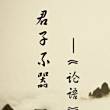 君子不器
——《论语》